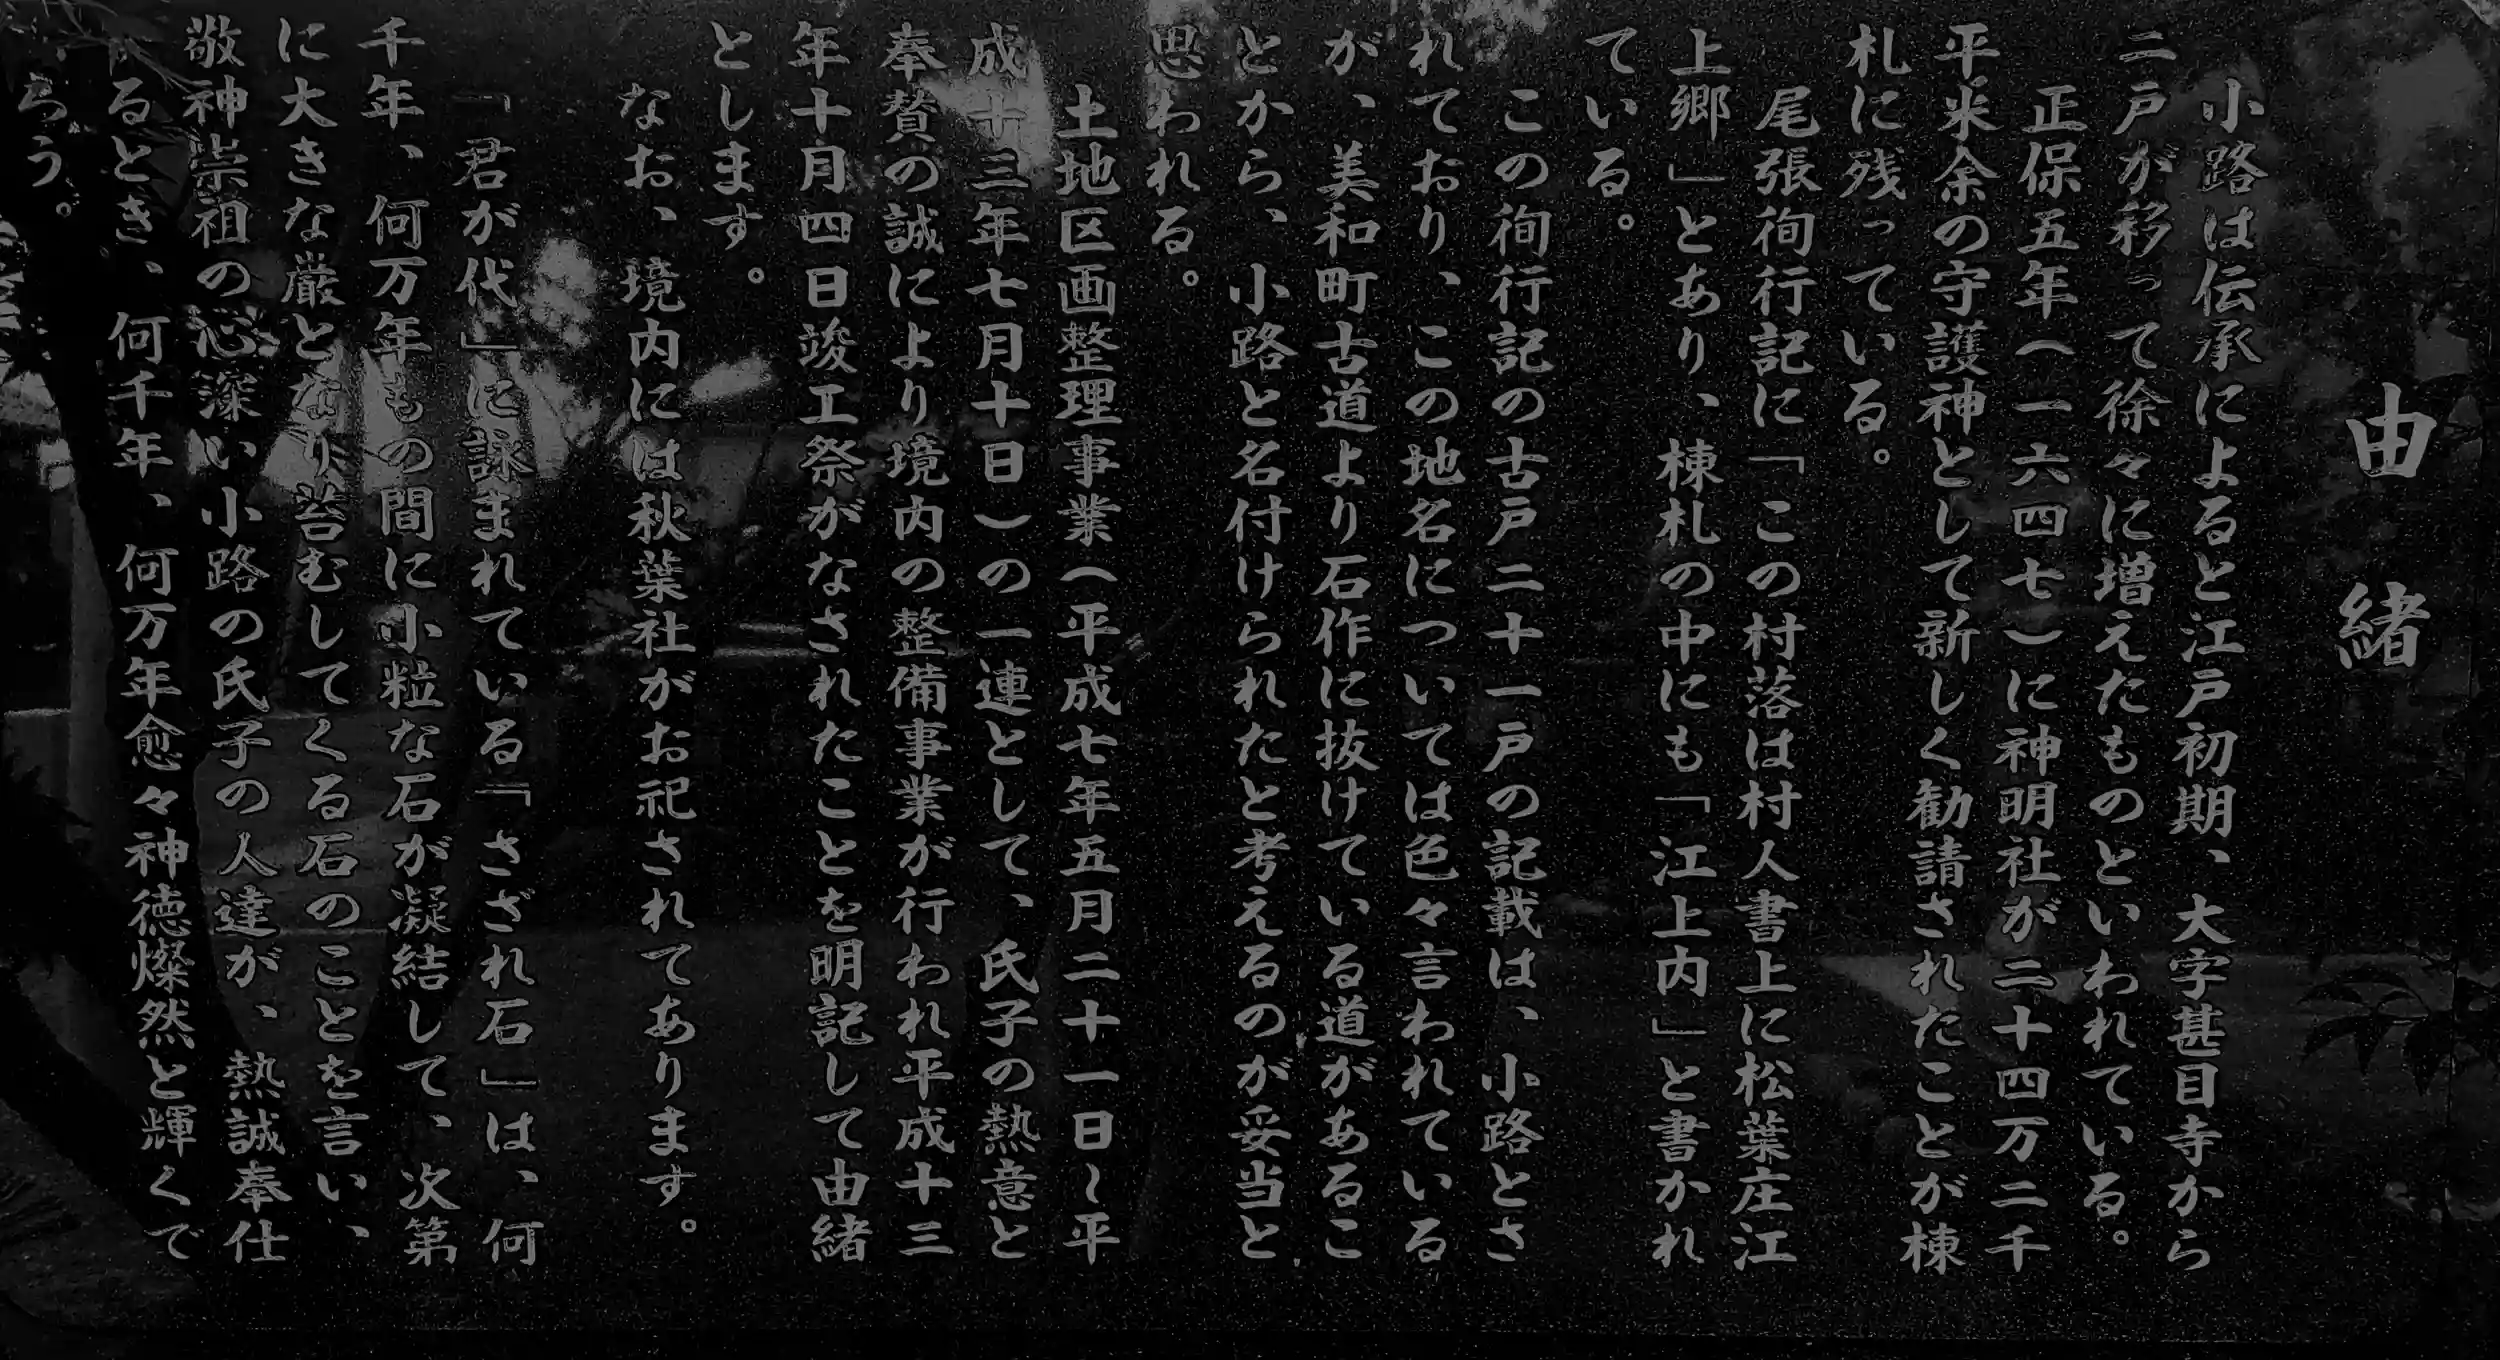 由緒
小路は伝承によると江戸初期、大字甚目寺から
二戸が移って徐々に増えたものといわれている。
正保五年(一六四七)に神明社が二十四万二千
平米余の守護神として新しく勧請されたことが棟
札に残っている。
尾張徇行記に「この村落は村人書上に松葉庄江
上郷」とあり、棟札の中にも「江上内」と書かれ
ている。
この徇行記の古戸二十一戸の記載は、小路とさ
れており、この地名については色々言われている
が、美和町古道より石作に抜けている道があるこ
とから、小路と名付けられたと考えるのが妥当と
思われる。
土地区画整理事業(平成七年五月二十一日~平
成十三年七月十日)の一連として、氏子の熱意と
奉賛の誠により境内の整備事業が行われ平成十三
年十月四日竣工祭がなされたことを明記して由緒
とします。
なお、境内には秋葉社がお祀されてあります。
「君が代」に詠まれている「さざれ石」は、何
千年、何万年もの間に小粒な石が凝結して、次第
に大きな巌となり苔むしてくる石のことを言い、
敬神崇祖の心深い小路の氏子の人達が、熱誠奉仕
るとき、何千年、何万年愈々神徳燦然と輝くで
ろう。